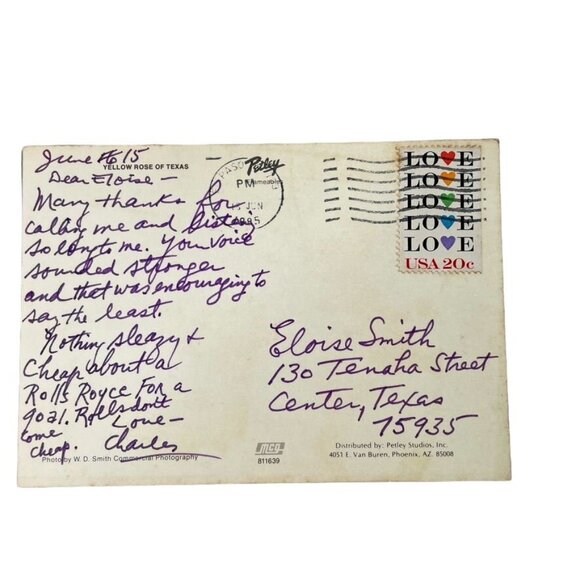 June 15
YELLOW ROSE OF TEXAS
Dear Eloise -
Many thanks for
calling me and
so long to me. Your voice
sounded stronger
and that was encouraging to
say the least.
Nothing sleazy &
Cheap about a
Rolls Royce For a
Rolls don't
come
cheap.
Love -
Charles
Photo by W. D. Smith Commercial Photography
Petley
PASO
PM
15 JUN
1985
LOVE
LOVE
LOVE
LOVE
LOVE
USA 20c
Eloise Smith
130 Tenaha Street
Center, Texas
75935
mcg
811639
Distributed by: Petley Studios, Inc.
4051 E. Van Buren, Phoenix, AZ. 85008